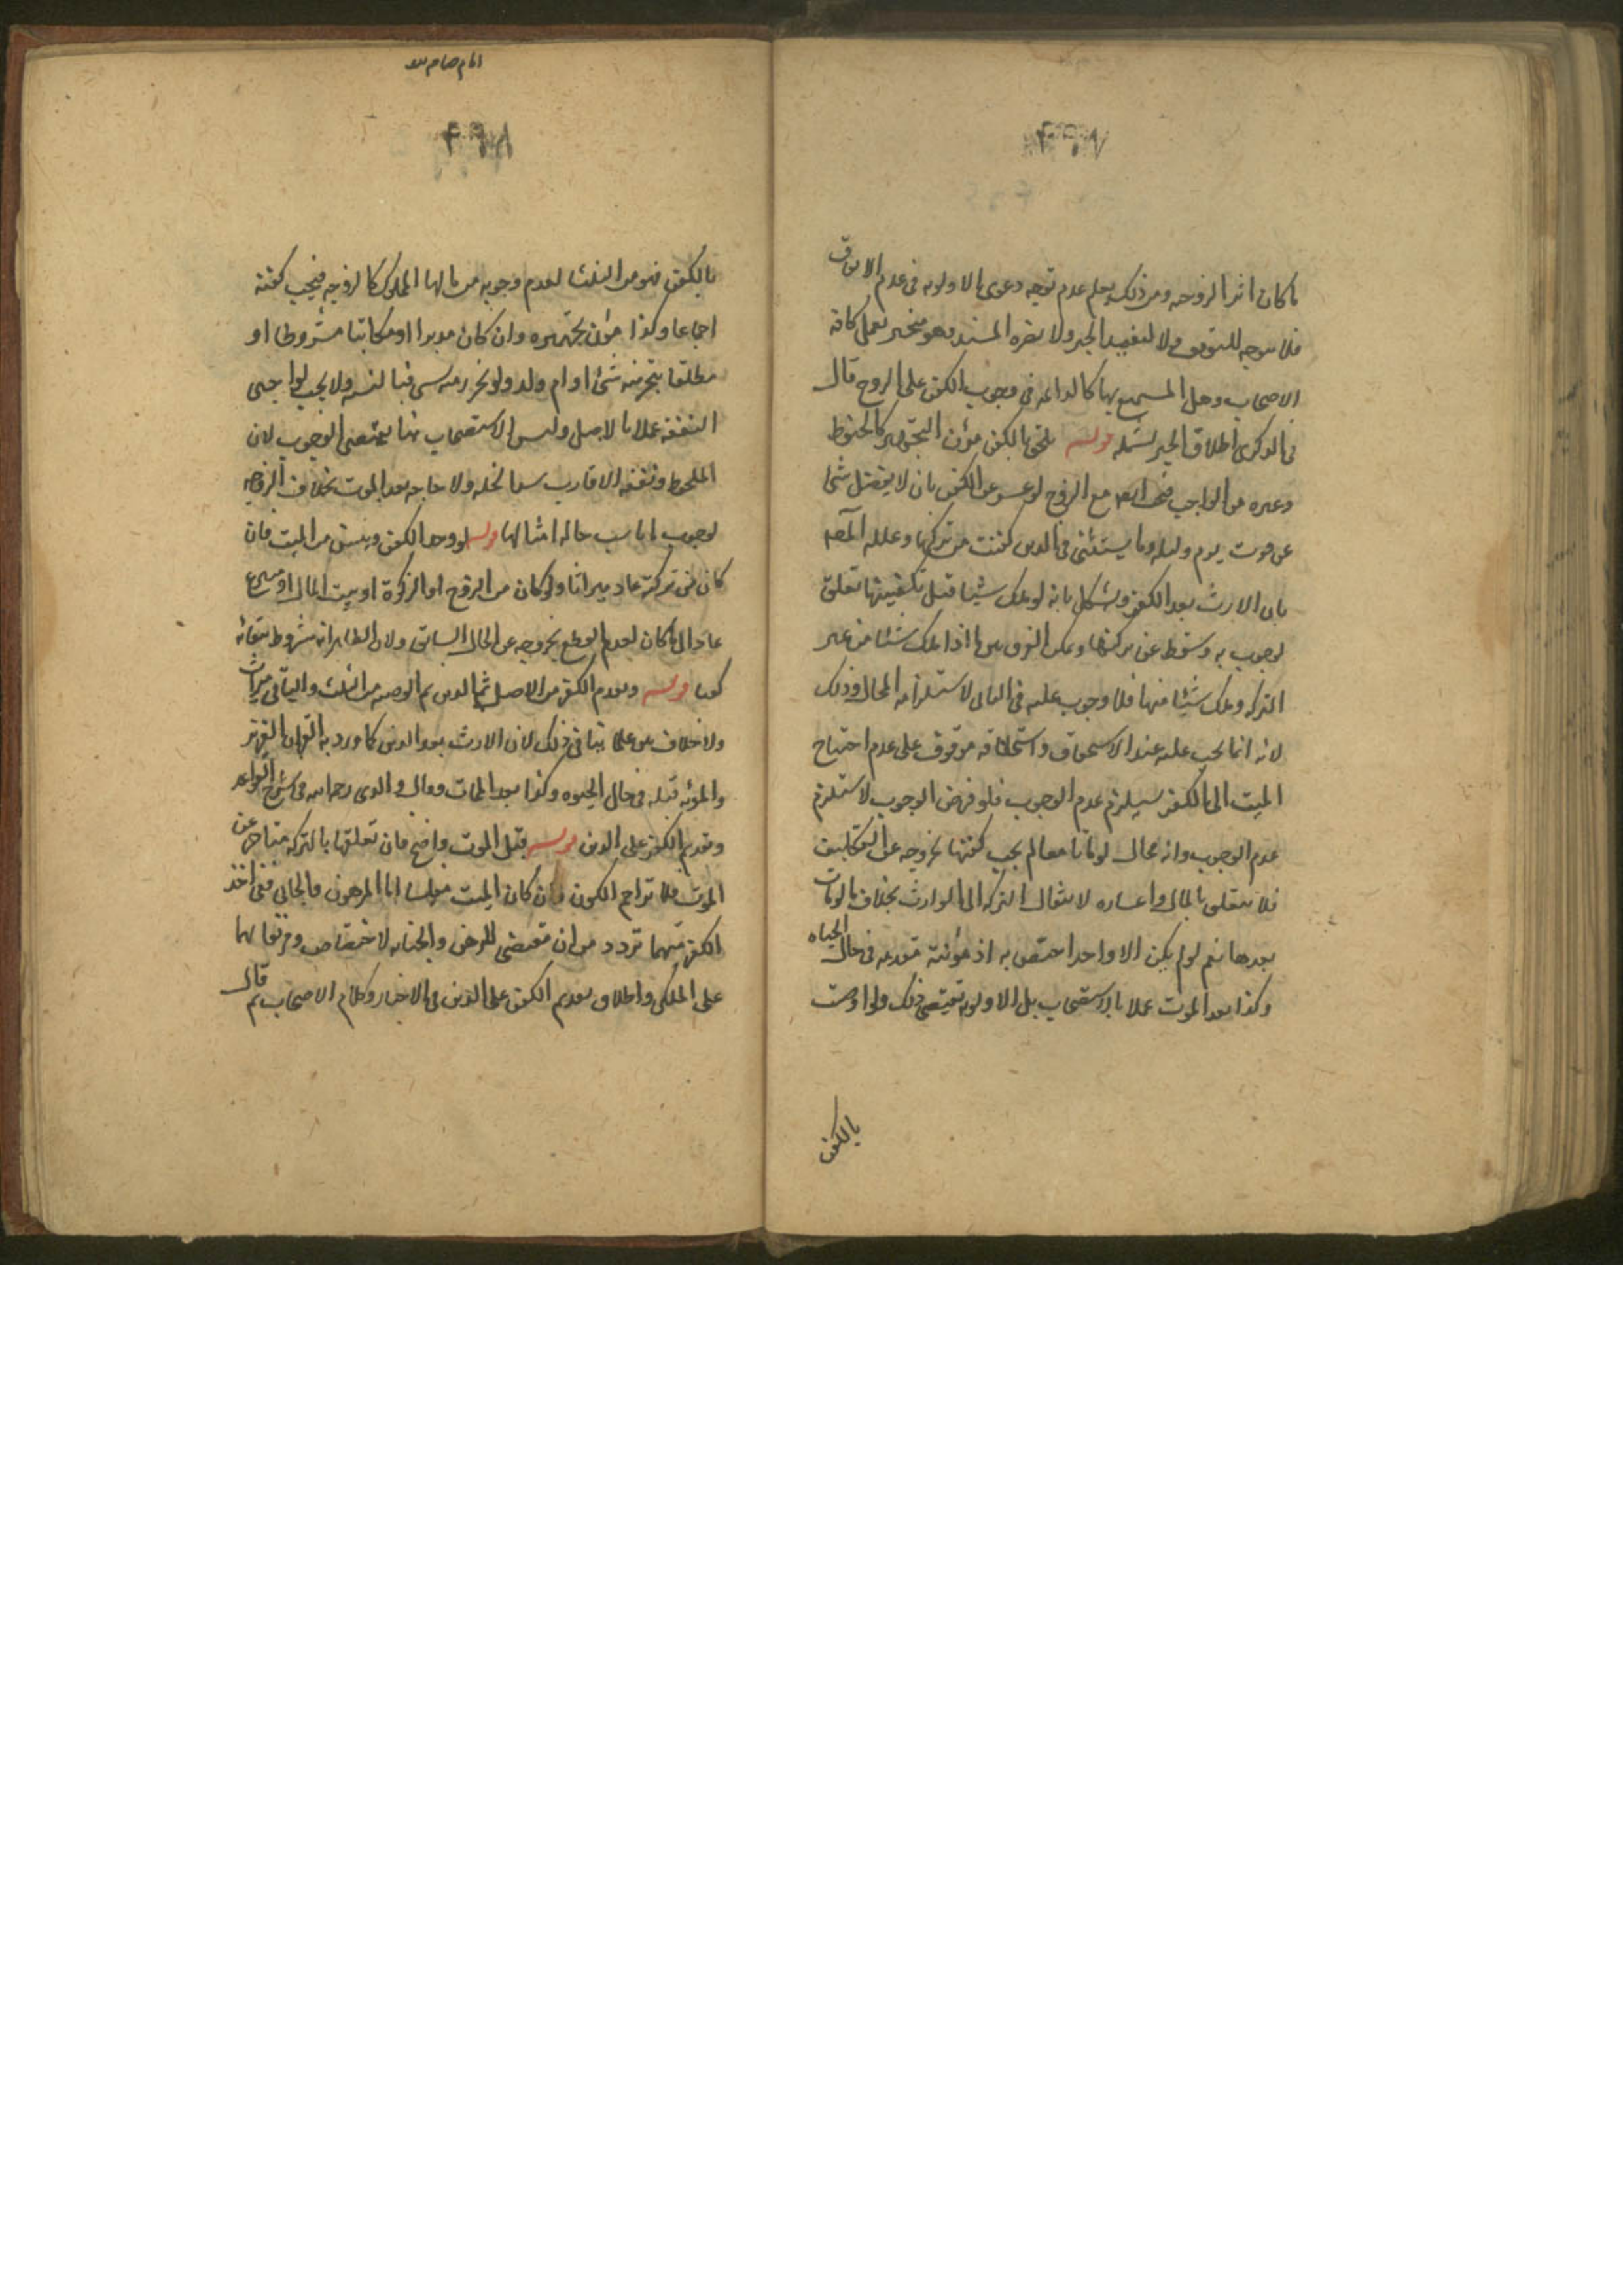 ما كان اثر الزوجه ومن ذلك يعلم عدم توجه دعوى الاولويه فى عدم الانفاق
فلا يتوجه للتوقف ولا لتقييد الخبر ولا يضره السند فهو منجبر بعمل كافه
الاصحاب وهل المستمتع بها كالدائمه فى وجوب الكفن على الزوج قال
فى الذكرى اطلاق الخبر يشمله قوله يلحق بالكفن مؤن التجهيز كالحنوط
وغيره من الواجب مع الزوج لو عسر عن الكفن بان لا يفضل شئ
عن قوت يوم وليله وما يستثنى فى الدين كفنت من تركتها وعلله
بان الارث بعد الكفن ويشكل بانه لو ملك شيئا قبل تكفينها تعلق
لوجوب به وسقط عن تركتها ويمكن الفرق بين ما اذا ملك شيئا من غير
التركه وملك شيئا منها فلا وجوب عليه فى الثانى لاستلزامه المحال وذلك
لانه انما يجب عليه عند الاستحقاق واستحقاقه موقوف على عدم احتياج
الميت الى الكفن سيلزم عدم الوجوب فلو فرض الوجوب لاستلزم
عدم الوجوب وانه محال لو ماتا معا لم يجب كفنها لخروجه عن التكليف
فلا يتعلق بالمال واعساره لانتقال التركه الى الوارث بخلاف ما لو مات
بعدها نعم لو لم يكن الا واحد اختص به اذ مؤنته مقدمه فى حال الحياه
وكذا بعد الموت عملا بالاستصحاب بل الاولويه تقتضى ذلك ولو اوصت
بالكفن
بالكفن فهو من الثلث لعدم وجوبه من مالها المملوك كالزوجه فيجب كفنه
اجماعا وكذا مؤن تجهيزه وان كان مدبرا او مكاتبا مشروطا او
مطلقا يتحرر منه شئ او ام ولد ولو تحرر منه شئ فبالنسبه ولا يجب لواجبى
النفقه عملا بالاصل وليس الاستصحاب هنا يقتضى الوجوب لان
الملحوظ ونفقه الاقارب سد الخله ولا حاجه بعد الموت بخلاف الزوجه
لوجوب ما ناسب حاله امثالها قوله لو وجد الكفن ويئس من الميت فان
كان من تركته عاد ميراثا ولو كان من الزوج او الزكوة او بيت المال او متبرع
عاد الى ما كان لعدم القطع بخروجه عن الحال السابق ولان الظاهر انه مشروط ببقائه
كفنا قوله ويقدم الكفن من الاصل ثم الدين ثم الوصيه من الثلث والباقى ميراث
ولا خلاف بين علمائنا فى ذلك لان الارث بعد الدين كما ورد به القران العزيز
والمؤنه قبله فى حال الحيوه وكذا بعد الممات وقال والدى رحمه الله فى شرح القواعد
وتقديم الكفن على الدين قوله قبل الموت واضح فان تعلقها بالتركه متاخر عن
الموت فلا تزاحم الكفن وان كان الميت مفلسا اما المرهون والجانى ففى اخذ
الكفن منهما تردد من ان مقتضى للرهن والجنايه لاختصاص ومن بقائهما
على الملك واطلاق تقديم الكفن على الدين فى الاخبار وكلام الاصحاب ثم قال